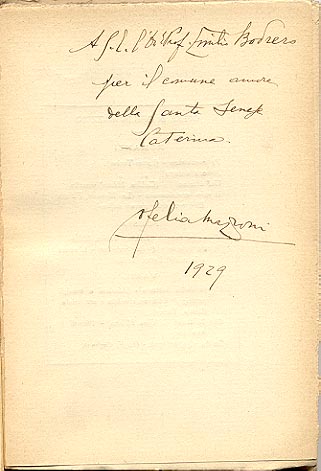 A S. E. l'On. Prof. Emilio Bodrero
per il comune amore
della Santa Senese
Caterina.
Ofelia Mazzoni
1929